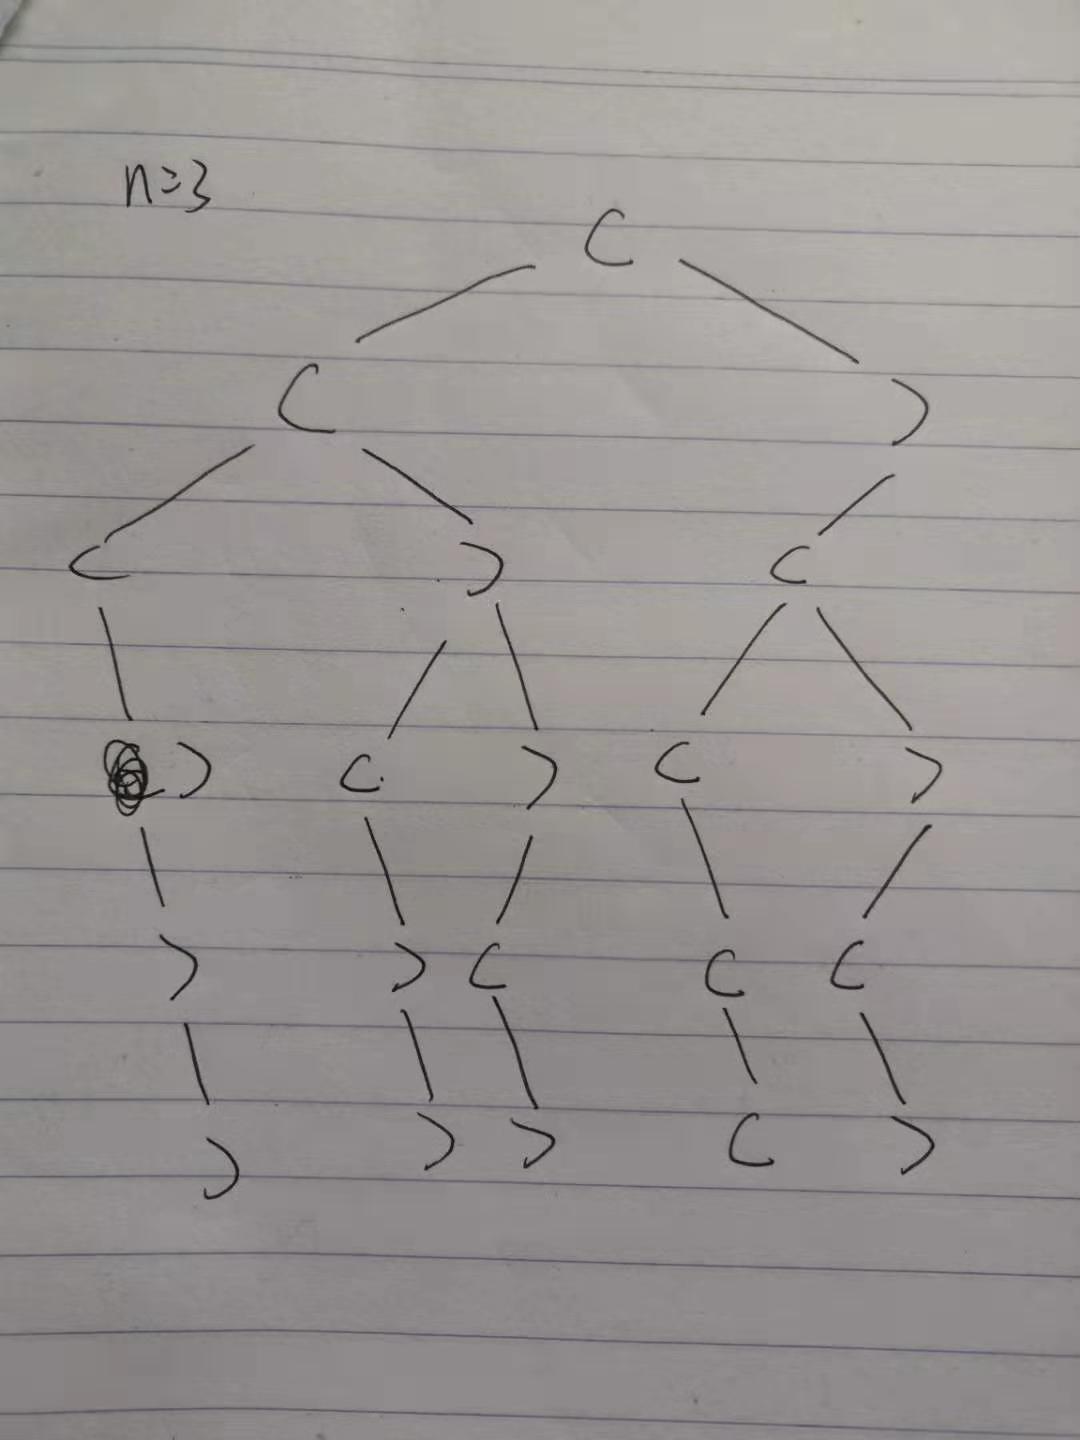 n=3
(
( )
( ) (
) ( ) ( )
) ) ( ( (
) ) ) ( )